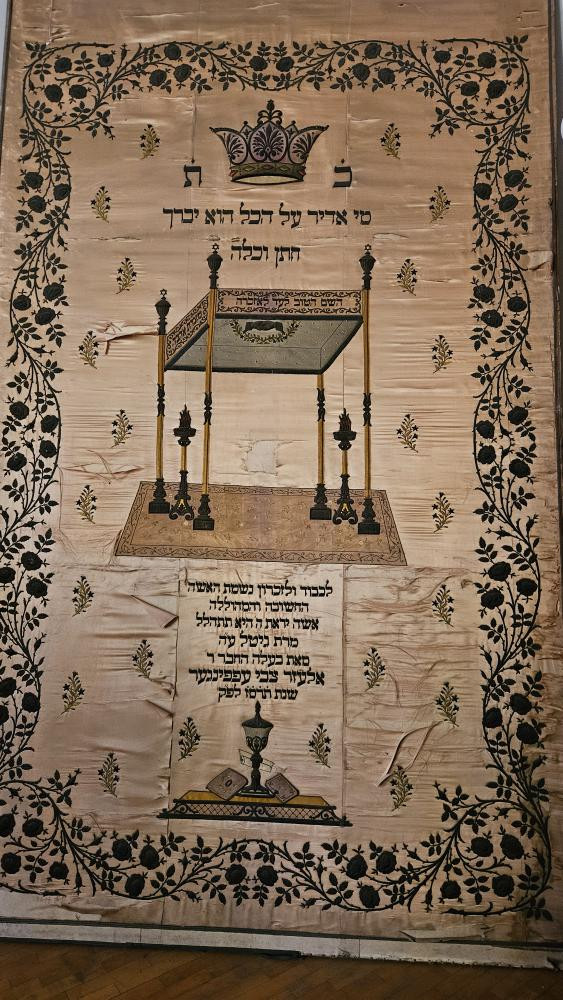 כ ת
מי אדיר על הכל הוא יברך
חתן וכלה
השם הטוב לעד לאזכרה
לכבוד ולזכרון נשמת האשה
החשובה והמהוללה
אשה יראת ה היא תתהלל
מרת גיטל ע״ה
מאת בעלה החבר ר
אלעזר צבי עפפינגער
שנת תרסז לפק